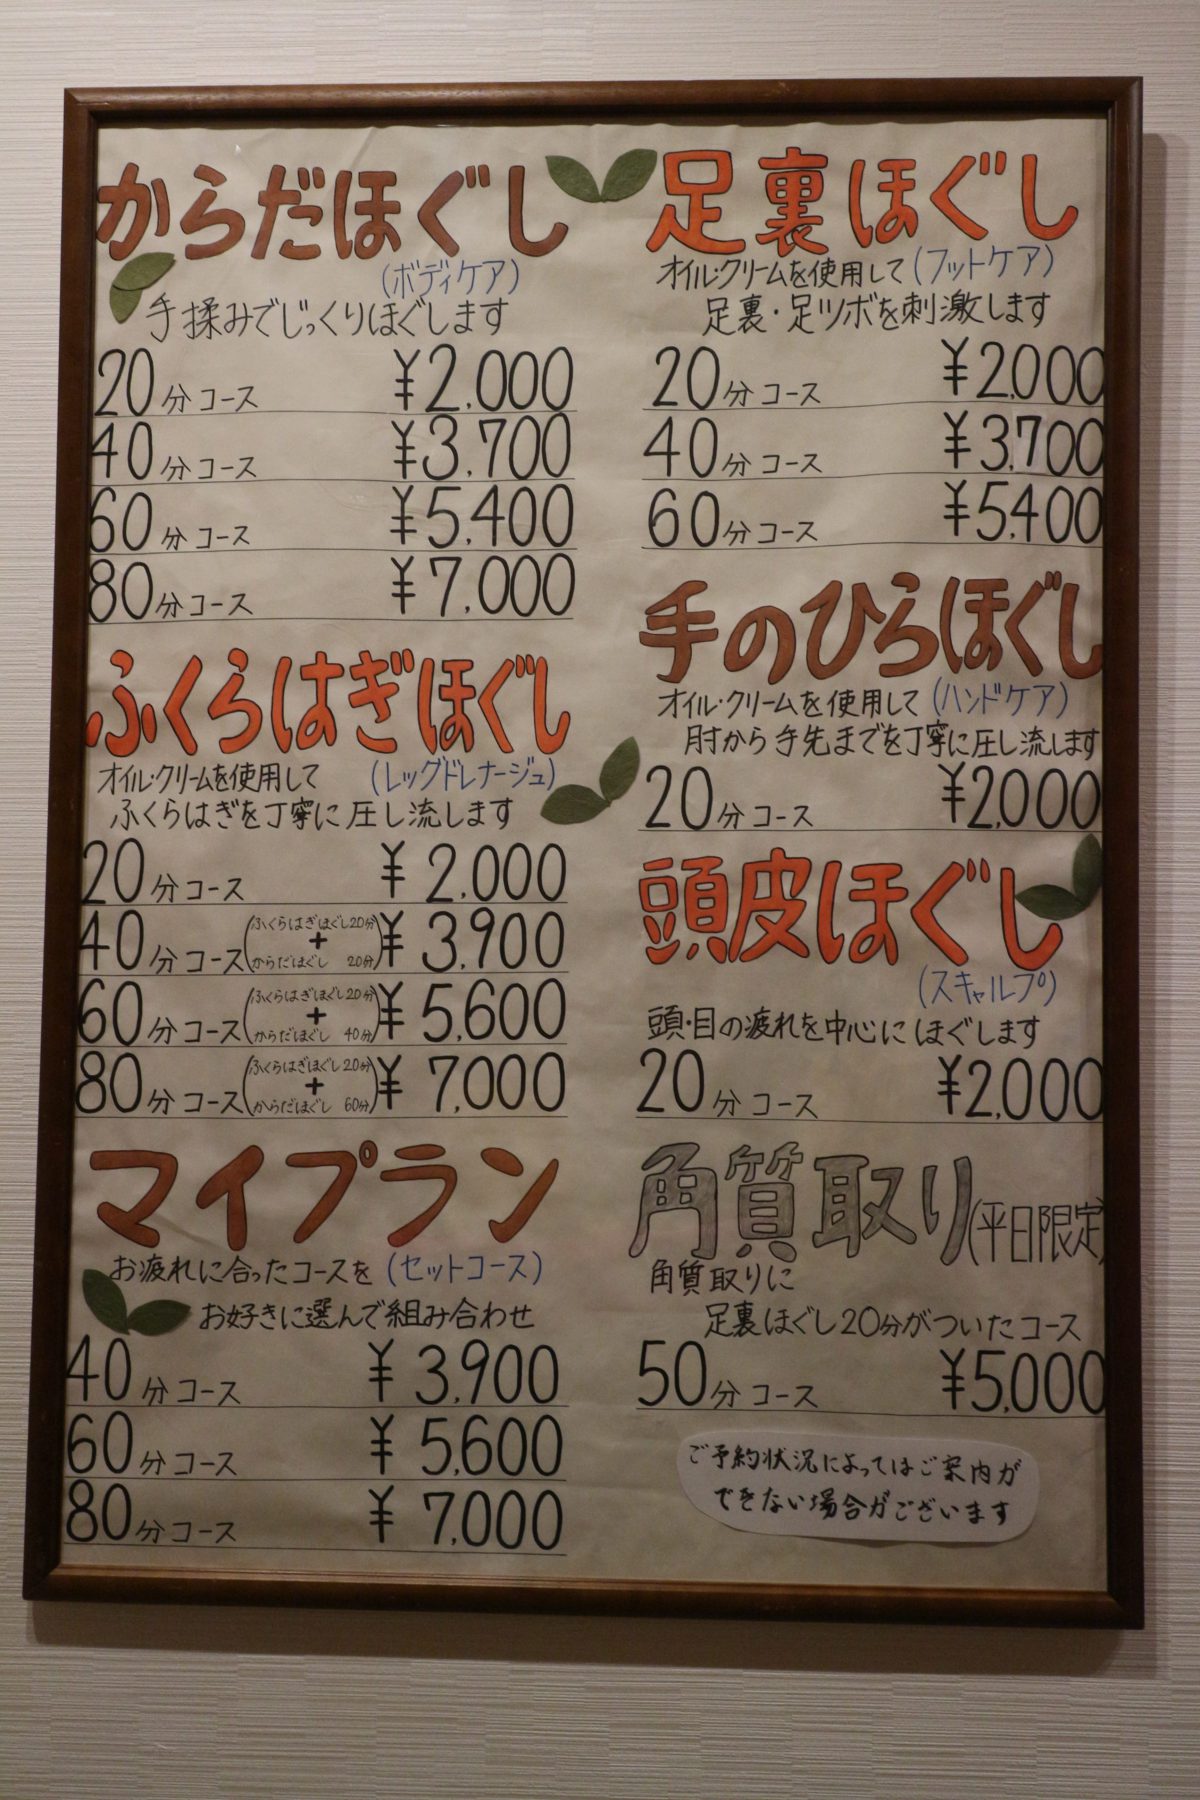 からだほぐし
(ボディケア)
手揉みでじっくりほぐします
20分コース ¥2,000
40分コース ¥3,700
60分コース ¥5,400
80分コース ¥7,000
ふくらはぎほぐし
オイル・クリームを使用して (レッグドレナージュ)
ふくらはぎを丁寧に圧し流します
20分コース ¥2,000
40分コース(ふくらはぎほぐし20分+からだほぐし 20分)¥3,900
60分コース(ふくらはぎほぐし20分+からだほぐし 40分)¥5,600
80分コース(ふくらはぎほぐし20分+からだほぐし 60分)¥7,000
マイプラン
お疲れに合ったコースを (セットコース)
お好きに選んで組み合わせ
40分コース ¥3,900
60分コース ¥5,600
80分コース ¥7,000
足裏ほぐし
オイル・クリームを使用して (フットケア)
足裏・足ツボを刺激します
20分コース ¥2,000
40分コース ¥3,700
60分コース ¥5,400
手のひらほぐし
オイル・クリームを使用して (ハンドケア)
肘から手先までを丁寧に圧し流します
20分コース ¥2,000
頭皮ほぐし
(スキャルプ)
頭・目の疲れを中心にほぐします
20分コース ¥2,000
角質取り(平日限定)
角質取りに
足裏ほぐし20分がついたコース
50分コース ¥5,000
ご予約状況によってはご案内が
できない場合がございます